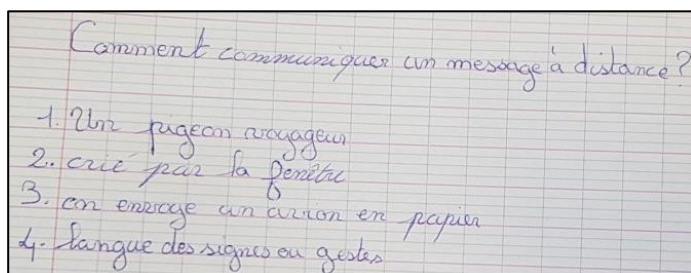 Comment communiquer un message à distance?
1. Un pigeon voyageur
2. crié par la fenêtre
3. on envoye un avion en papier
4. langue des signes ou gestes